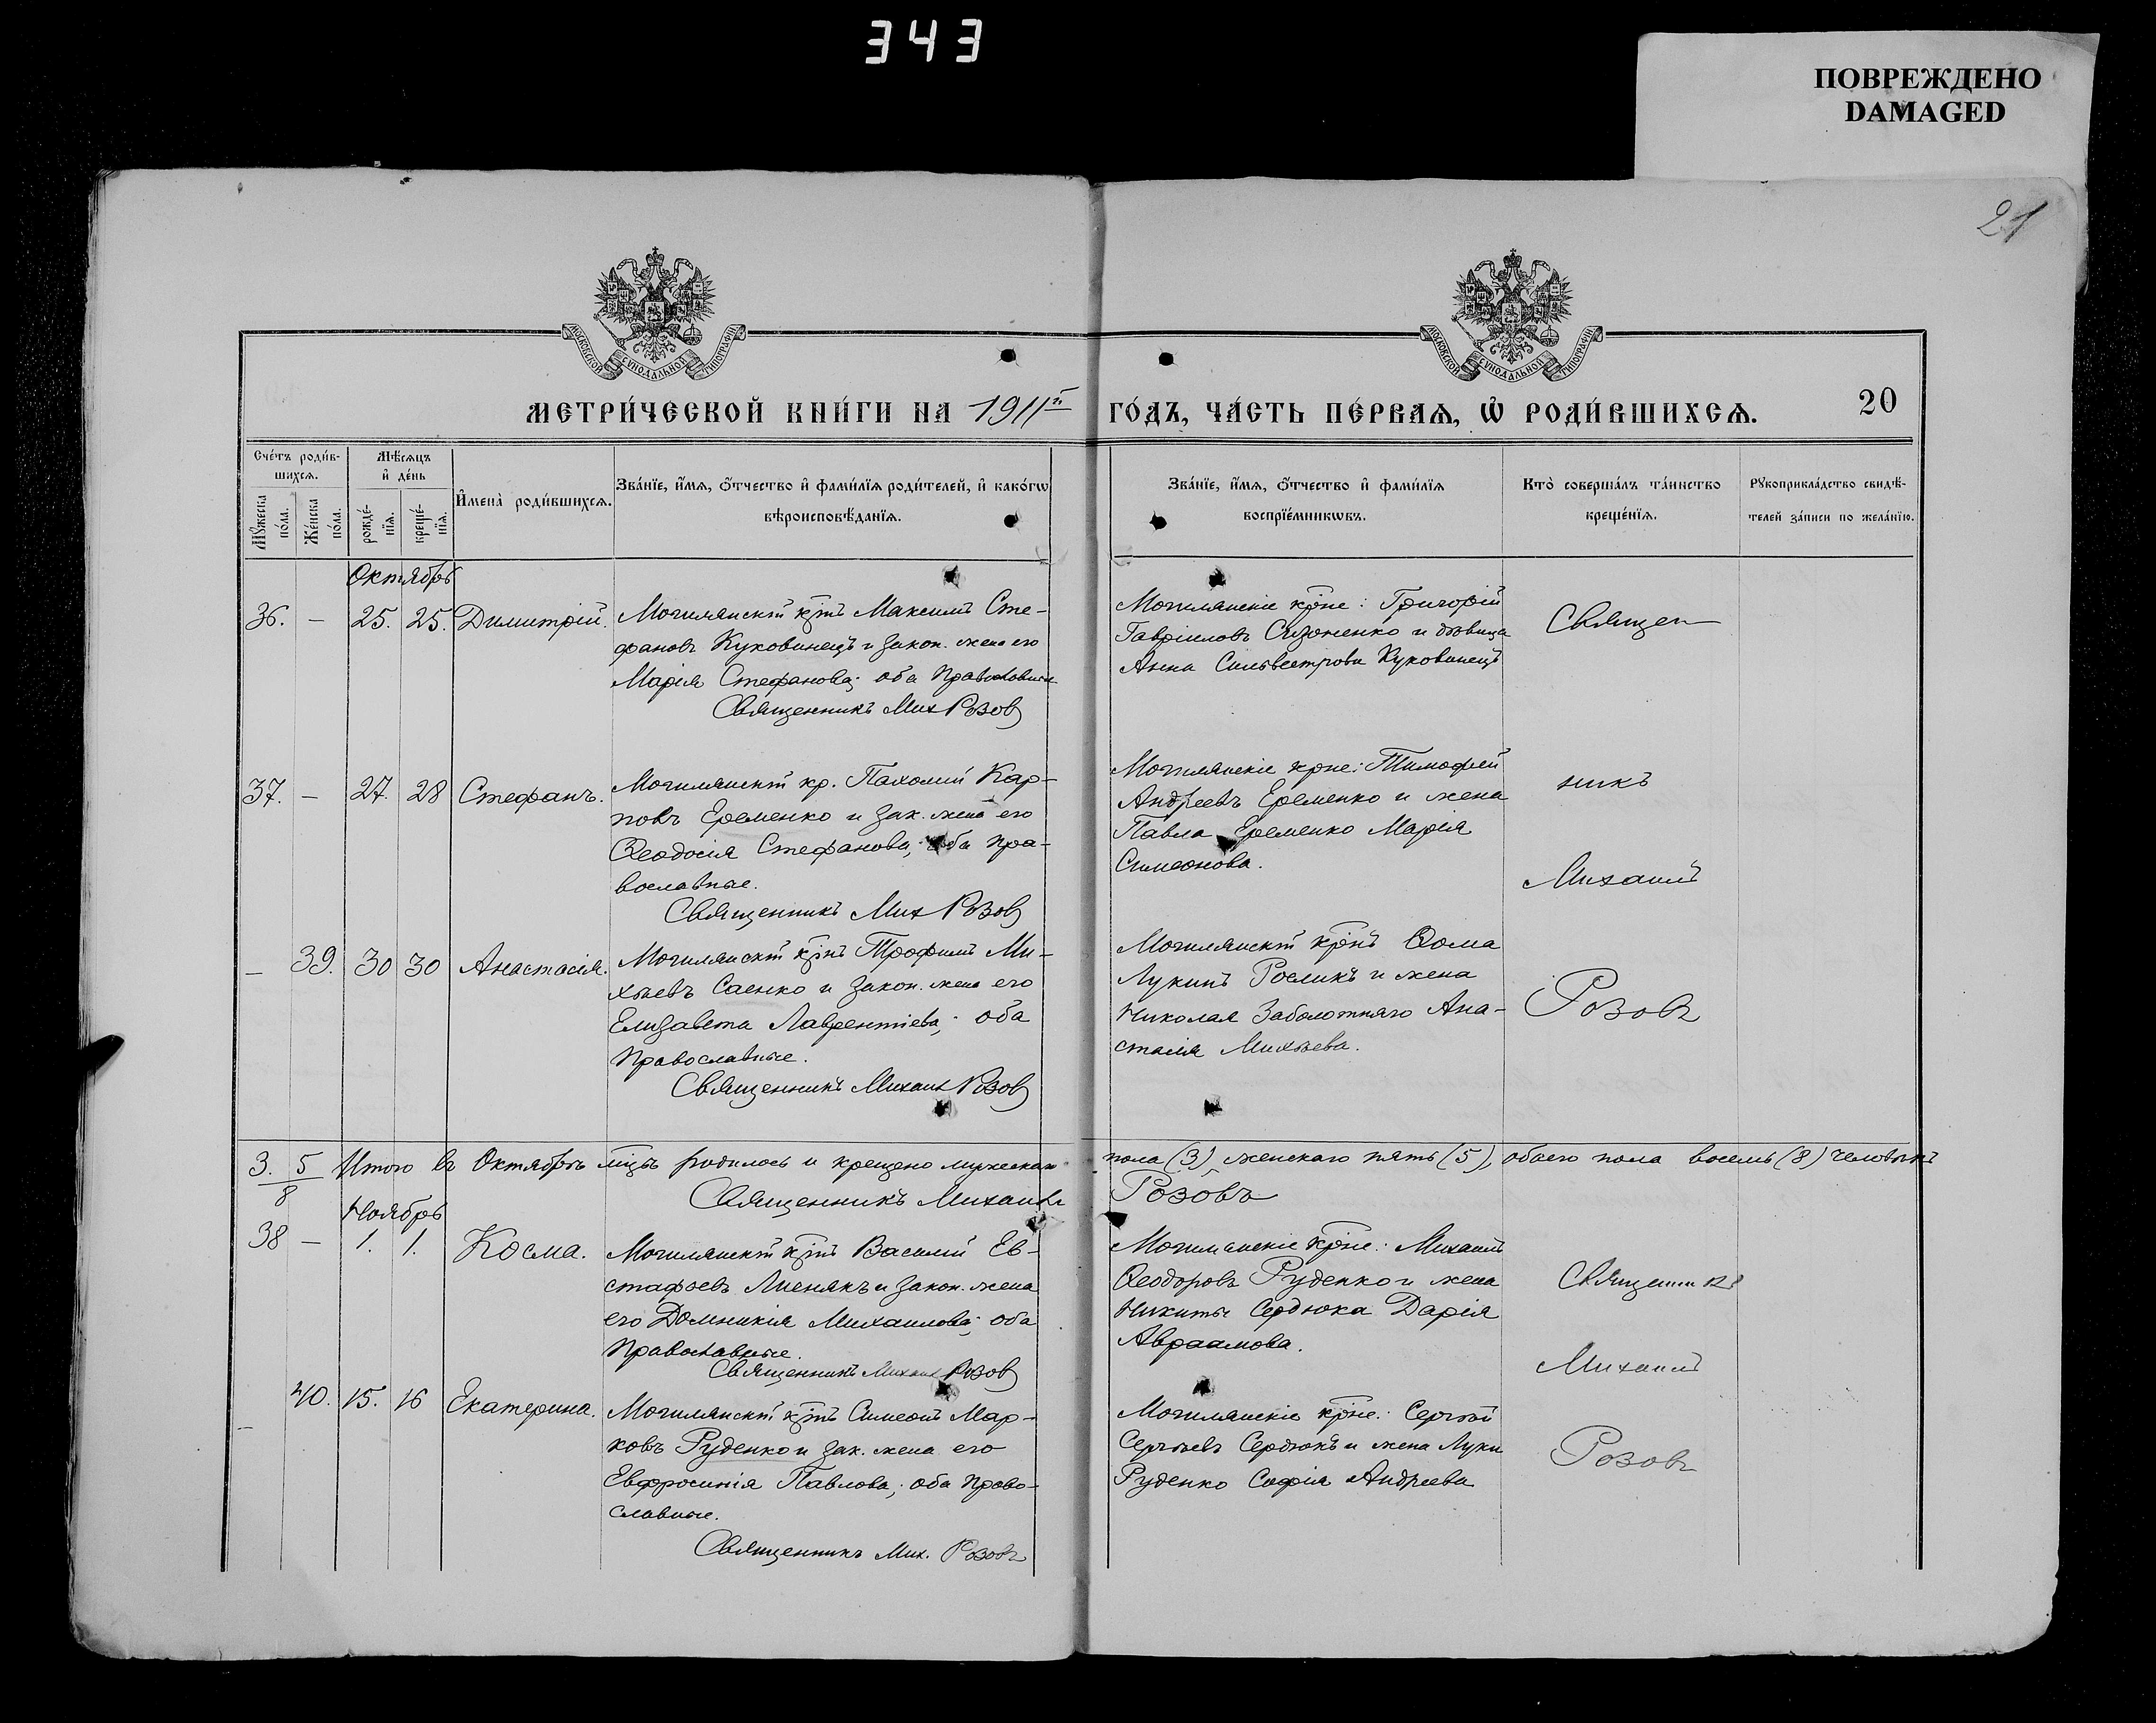 343
ПОВРЕЖДЕНО
DAMAGED
21
МОСКОВСКОЙ СѴНОДАЛЬНОЙ ТИПОГРАФІИ
МОСКОВСКОЙ СѴНОДАЛЬНОЙ ТИПОГРАФІИ
МЕТРИ́ЧЕСКОЙ КНИ́ГИ НА 1911й
ГО́ДЪ, ЧА́СТЬ ПЕ́РВАѦ, Ѡ҆ РОДИ́ВШИХСѦ.
20
Сче́тъ роди́в-
шихсѧ.
Мꙋ́жеска
по́ла.
Же́нска
по́ла.
Мѣ́сѧцъ
и҆ де́нь
рожде́-
нїѧ.
креще́-
нїѧ.
И҆мена̀ роди́вшихсѧ.
Зва́нїе, и҆́мѧ, ѻ҆́тчество и҆ фами́лїѧ роди́телей, и҆ како́гѡ
вѣроисповѣ́данїѧ.
Зва́нїе, и҆́мѧ, ѻ҆́тчество и҆ фами́лїѧ
воспрїе́мникѡвъ.
Кто̀ соверша́лъ та́инство
креще́нїѧ.
Рꙋкоприкла́дство свидѣ́-
телей за́писи по жела́нїю.
Октябрь
36. — 25. 25. Димитрій.
Могилянскій крнъ Максимъ Сте-
фановъ Куковинецъ и закон. жена его
Марія Стефанова; оба православные
Священникъ Мих Розов
Могилянскіе крне: Григорій
Гавріиловъ Сизоненко и дѣвица
Анна Сильвестрова Куковинецъ
Священ
37. — 27. 28 Стефанъ.
Могилянскій кр. Пахомій Кар-
повъ Еременко и зак. жена его
Ѳеодосія Стефанова; оба пра-
вославные.
Священникъ Мих Розов
Могилянскіе крне: Тимофей
Андреевъ Еременко и жена
Павла Еременко Марія
Симеонова.
никъ
Михаилъ
— 39. 30 30 Анастасія.
Могилянскій крнъ Трофимъ Ми-
хѣевъ Саенко и закон. жена его
Елизавета Лаврентіева; оба
православные.
Священникъ Михаил Розов
Могилянскій крнъ Ѳома
Лукинъ Рослик и жена
Николая Заболотнаго Ана-
стасія Михѣева.
Розовъ
3. 5
8
Итого въ Октябрѣ мцѣ родилось и крещено мужескаго
пола (3), женскаго пять (5), обоего пола восемь (8) человѣкъ
Священникъ Михаилъ
Розовъ
Ноябрь
38 — 1. 1. Косма.
Могилянскій крнъ Василій Ев-
стафьевъ Лиенякъ и закон. жена
его Домникія Михаилова; оба
православные.
Священникъ Михаил Розов
Могилянскіе крне: Михаилъ
Ѳеодоровъ Руденко и жена
Никиты Сердюка Дарія
Авраамова.
Священникъ
Михаилъ
— 40. 15. 16 Екатерина.
Могилянскій крнъ Симеонъ Мар-
ковъ Руденко и зак. жена его
Евфросинія Павлова; оба право-
славные.
Священникъ Мих. Розовъ
Могилянскіе крне: Сергѣй
Сергѣевъ Сердюкъ и жена Луки
Руденко Софія Андреева
Розовъ